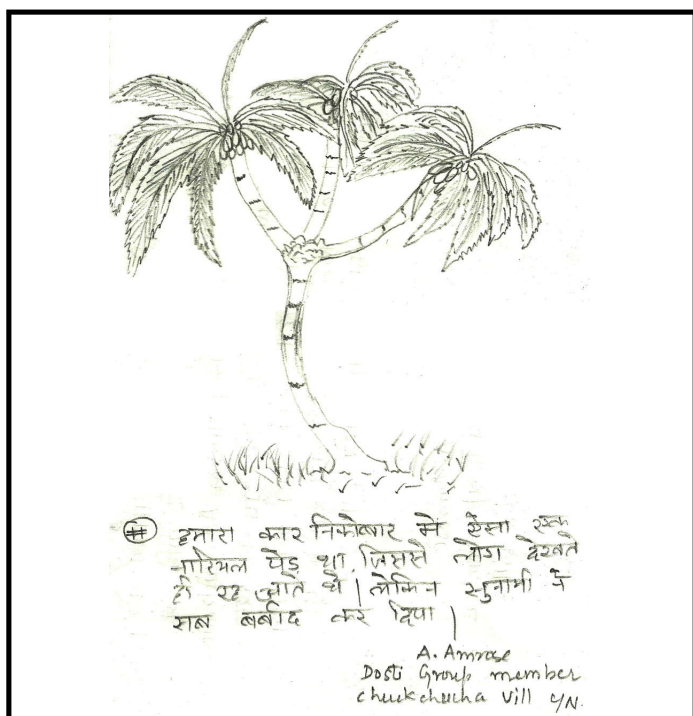 # हमारा कार निकोबार मे ऐसा एक
नारियल पेड़ था, जिससे लोग देखते
ही रह जाते थे | लेकिन सुनामी ने
सब बर्बाद कर दिया |
A. Amrose
Dosti Group member
Chuckchucha Vill C/N.